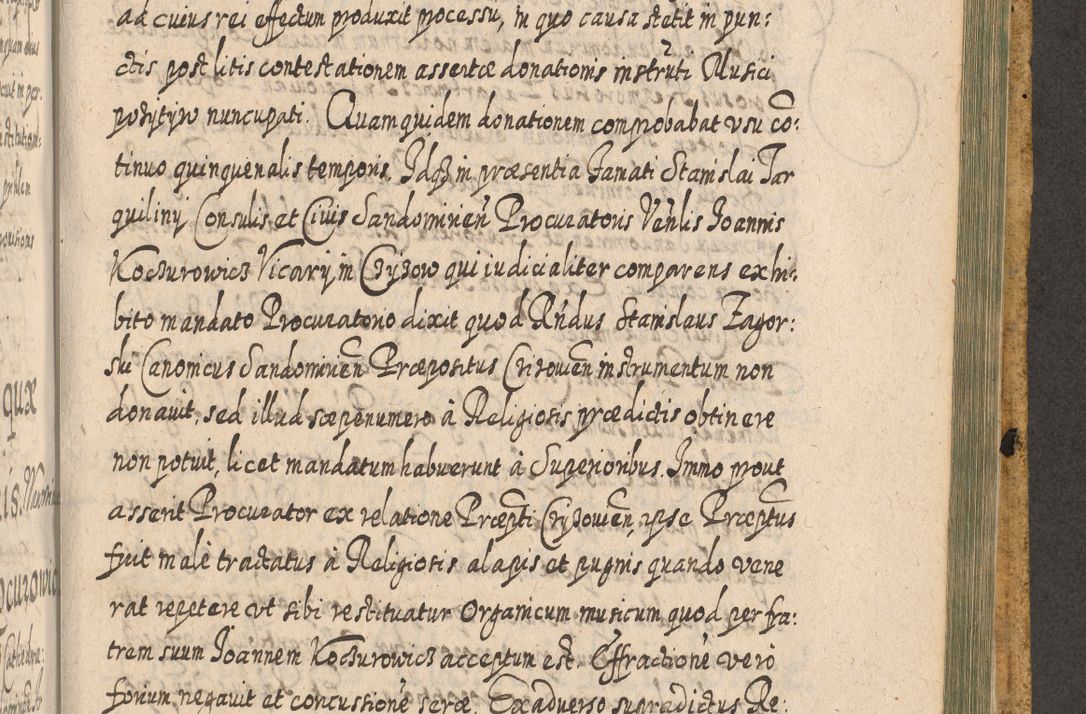 ad cuius rei effectum produxit processu, in quo causa stetit in pun:
ctis post litis contestationem assertæ donationis instruti Musici
pozytyw nuncupati. Quamquidem donationem comprobabat vsu cō:
tinuo quinquenalis temporis. Idq3 in præsentia Famati Stanislai Tar
quiliny Consulis et Civis Sandomirien̄ Procuratoris Ven̄lis Joannis
Koczurowicz Vicary in Czyzow qui iudicialiter comparens exhi:
bito mandato Procuratorio dixit quod Rn̄dus Stanislaus Zagor:
ski Canonicus Sandomirien̄ Præpositus Czyzowien̄ instrumentum non
donauit, sed illud sæpenumero à Religiosis prædictis obtinere
non potuit, licet mandatum habuerunt à Superioribus. Immo prout
asserit Procurator ex relatione Præpti Czyzowien̄, ipse Præptus
fuit malè tractatus à Religiosis alapis et pugnis quando vene
rat repetere vt sibi restituatur Organicum musicum quod per fra:
trem suum Joannem Koczurowicz acceptum est. Effractionē verò
forium negauit et concussionē seræ. Ex adverso supradictus Re: